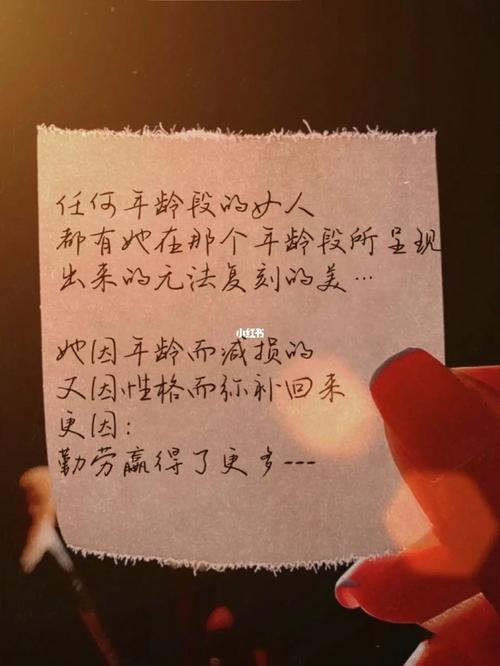 任何年龄段的女人
都有她在那个年龄段所呈现
出来的无法复刻的美…
小红书
她因年龄而减损的
又因性格而弥补回来
更因:
勤劳赢得了更多---